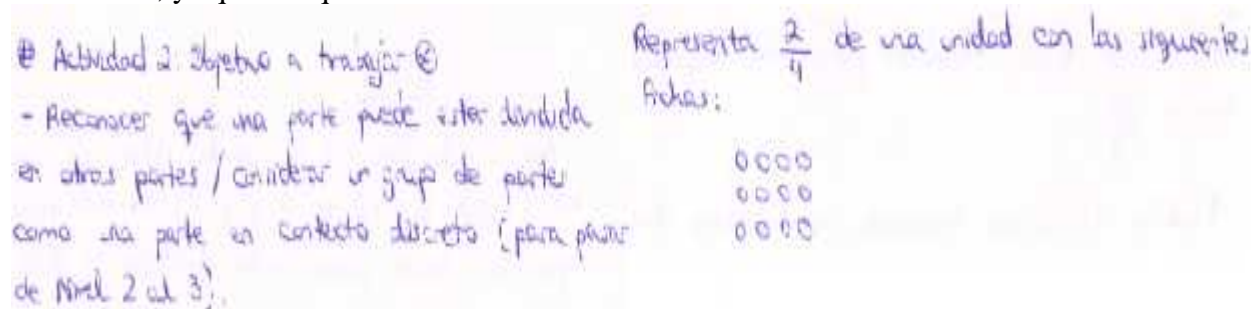 # Actividad 2: Objetivo a trabajar ©
- Reconocer que una parte puede estar dividida
en otras partes / considerar un grupo de partes
como una parte en contexto discreto (para pasar
de Nivel 2 al 3).
Representa 2/4 de una unidad con las siguientes
fichas: